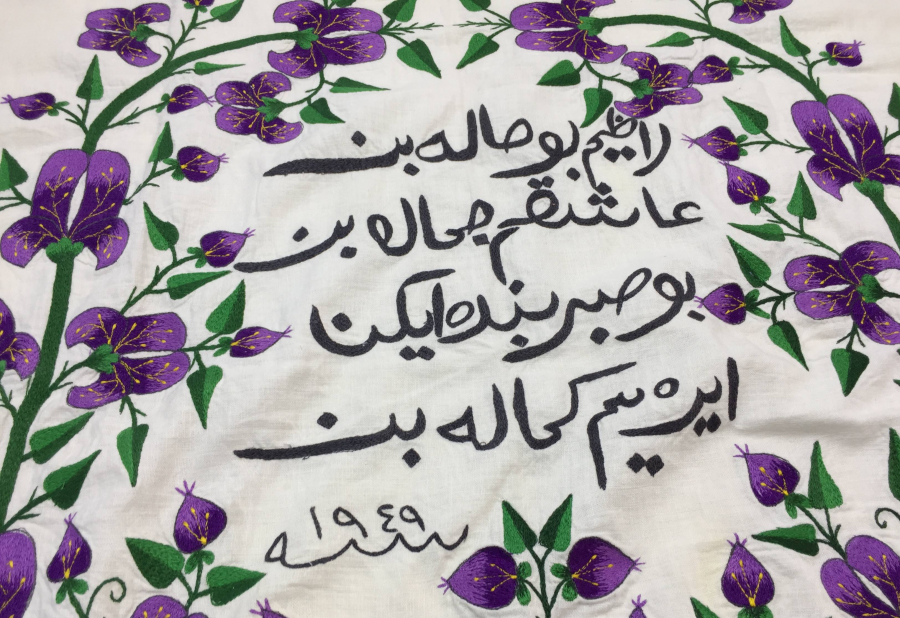 راظیم بو حاله بن
عاشقم جماله بن
بو صبر بنده ایکن
ایررم کماله بن
سنه ١٩٤٩